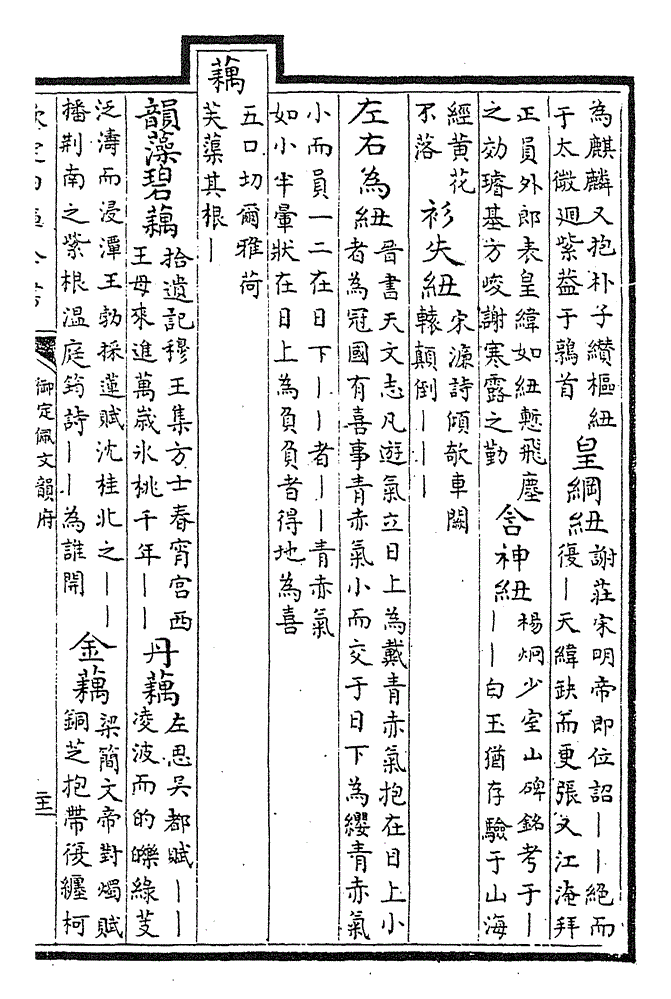 為麒麟又抱朴子纉樞紐
于太微迴紫蓋于鶉首
皇綱紐
謝莊宋明帝即位詔丨丨絕而
復丨天緯缺而更張又江淹拜
正員外郎表皇緯如紐慙飛塵
之効璿基方峻謝寒露之勤
含神紐
楊炯少室山碑銘考于丨
丨丨白玉猶存驗于山海
經黄花
不落
衫失紐
宋濂詩傾欹車闗
轅顛倒丨丨丨
左右為紐
晉書天文志凡遊氣立日上為戴青赤氣抱在日上小
者為冠國有喜事青赤氣小而交于日下為纓青赤氣
小而員一二在日下丨丨者丨丨青赤氣
如小半暈狀在日上為負負者得地為喜
藕
五口切爾雅荷
芙蕖其根丨
韻藻碧藕
拾遺記穆王集方士春宵宫西
王母來進萬歳氷桃千年丨丨
丹藕
左思吳都賦丨丨
凌波而的皪綠芰
泛濤而浸潭王勃採蓮賦沈桂北之丨丨
播荆南之紫根温庭筠詩丨丨為誰開
金藕
梁簡文帝對燭賦
銅芝抱帶復纏柯
御定佩文韻府